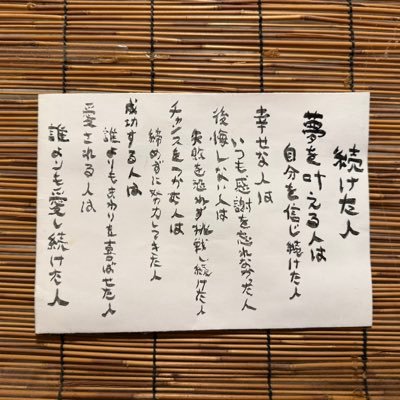 続けた人
夢を叶える人は
自分を信じ続けた人
幸せな人は
いつも感謝を忘れなかった人
後悔しない人は
失敗を恐れず挑戦し続けた人
チャンスをつかむ人は
諦めずに努力してきた人
成功する人は
誰よりもまわりを喜ばせた人
愛される人は
誰よりも愛し続けた人